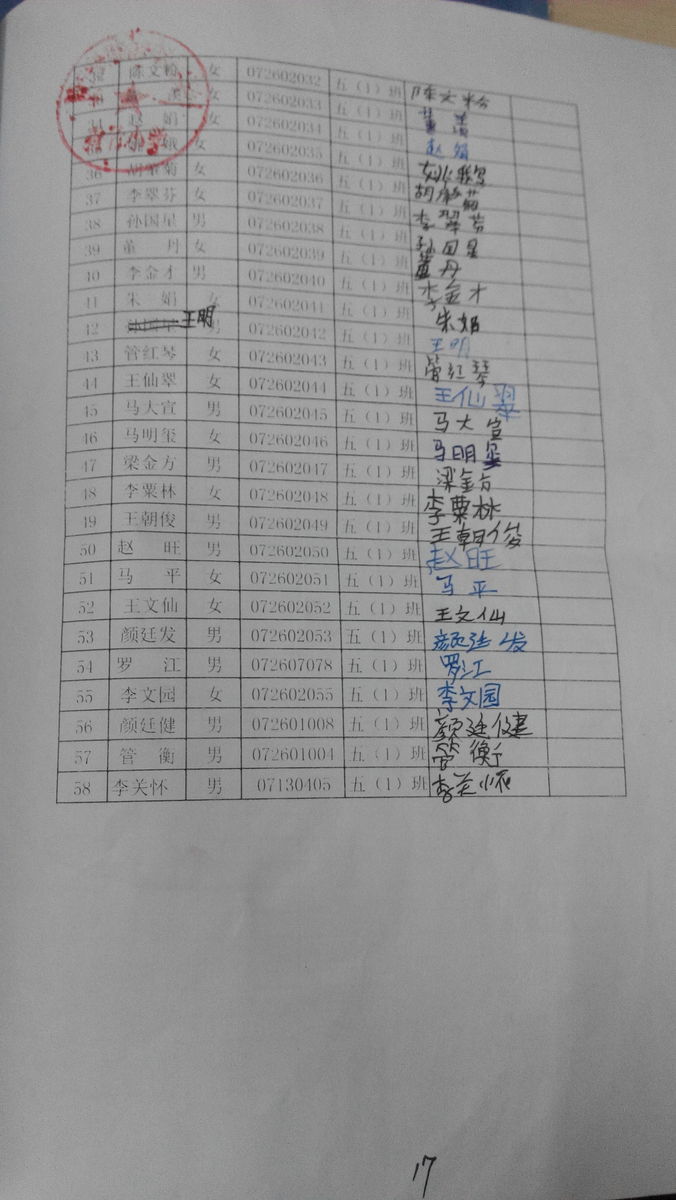 32 陈文粉 女 072602032 五（1）班 陈文粉
女 072602033 五（1）班
34 赵 娟 女 072602034 五（1）班 赵娟
娥 女 072602035 五（1）班
36 胡 菊 女 072602036 五（1）班 胡 菊
37 李翠芬 女 072602037 五（1）班 李翠芬
38 孙国星 男 072602038 五（1）班 孙国星
39 董 丹 女 072602039 五（1）班 董丹
40 李金才 男 072602040 五（1）班 李金才
41 朱 娟 女 072602041 五（1）班 朱娟
42 王明 男 072602042 五（1）班 王明
43 管红琴 女 072602043 五（1）班 管红琴
44 王仙翠 女 072602044 五（1）班 王仙翠
45 马大宣 男 072602045 五（1）班 马大宣
46 马明玺 女 072602046 五（1）班 马明玺
47 梁金方 男 072602047 五（1）班 梁金方
48 李粟林 女 072602048 五（1）班 李粟林
49 王朝俊 男 072602049 五（1）班 王朝俊
50 赵 旺 男 072602050 五（1）班 赵旺
51 马 平 女 072602051 五（1）班 马平
52 王文仙 女 072602052 五（1）班 王文仙
53 颜廷发 男 072602053 五（1）班 颜廷发
54 罗 江 男 072607078 五（1）班 罗江
55 李文园 女 072602055 五（1）班 李文园
56 颜廷健 男 072601008 五（1）班 颜廷健
57 管 衡 男 072601004 五（1）班 管衡
58 李关怀 男 07130405 五（1）班 李关怀
17